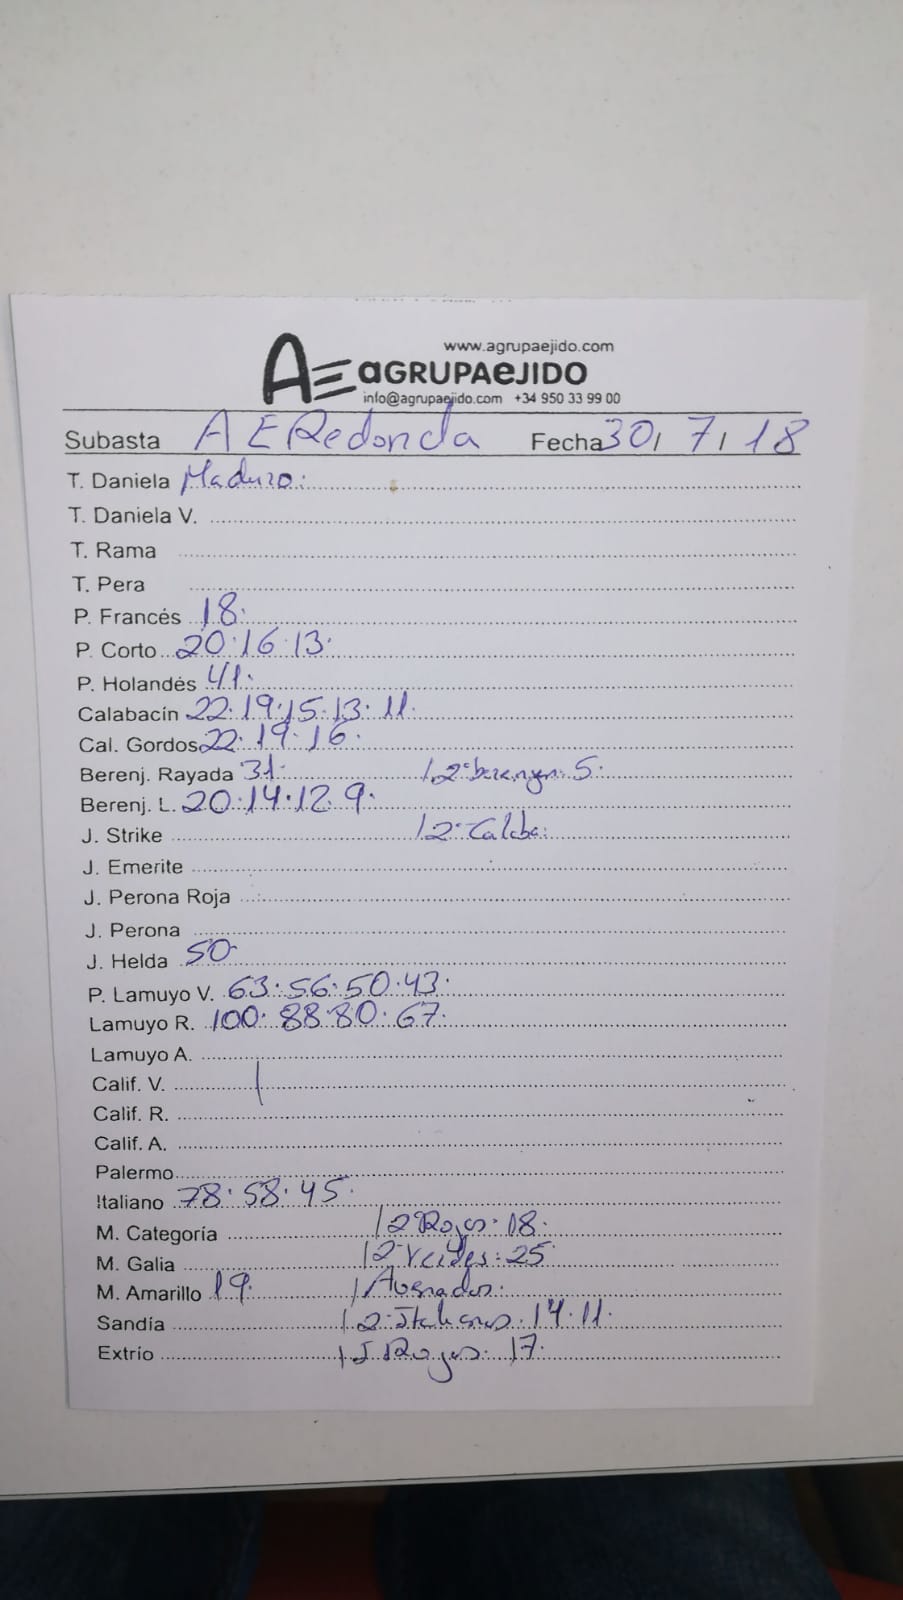 www.agrupaejido.com
AE aGRUPAeJIDO
info@agrupaejido.com +34 950 33 99 00
Subasta AE Redonda Fecha 30/ 7/ 18
T. Daniela Maduro:
T. Daniela V.
T. Rama
T. Pera
P. Francés 18.
P. Corto 20.16.13.
P. Holandés 41.
Calabacín 22.19.15.13.11.
Cal. Gordos 22.19.16.
Berenj. Rayada 31. / 2ª berenjen: 5.
Berenj. L. 20.14.12.9.
J. Strike / 2ª Calaba:
J. Emerite
J. Perona Roja
J. Perona
J. Helda 50.
P. Lamuyo V. 63.56.50.43.
Lamuyo R. 100.88.80.67.
Lamuyo A.
Calif. V. /
Calif. R.
Calif. A.
Palermo
Italiano 78.58.45.
M. Categoría / 2ª Rojos. 18.
M. Galia / 2ª Verdes: 25
M. Amarillo 19. /
Sandía / 2ª Italianos. 14.11.
Extrío / J Rojos. 17.